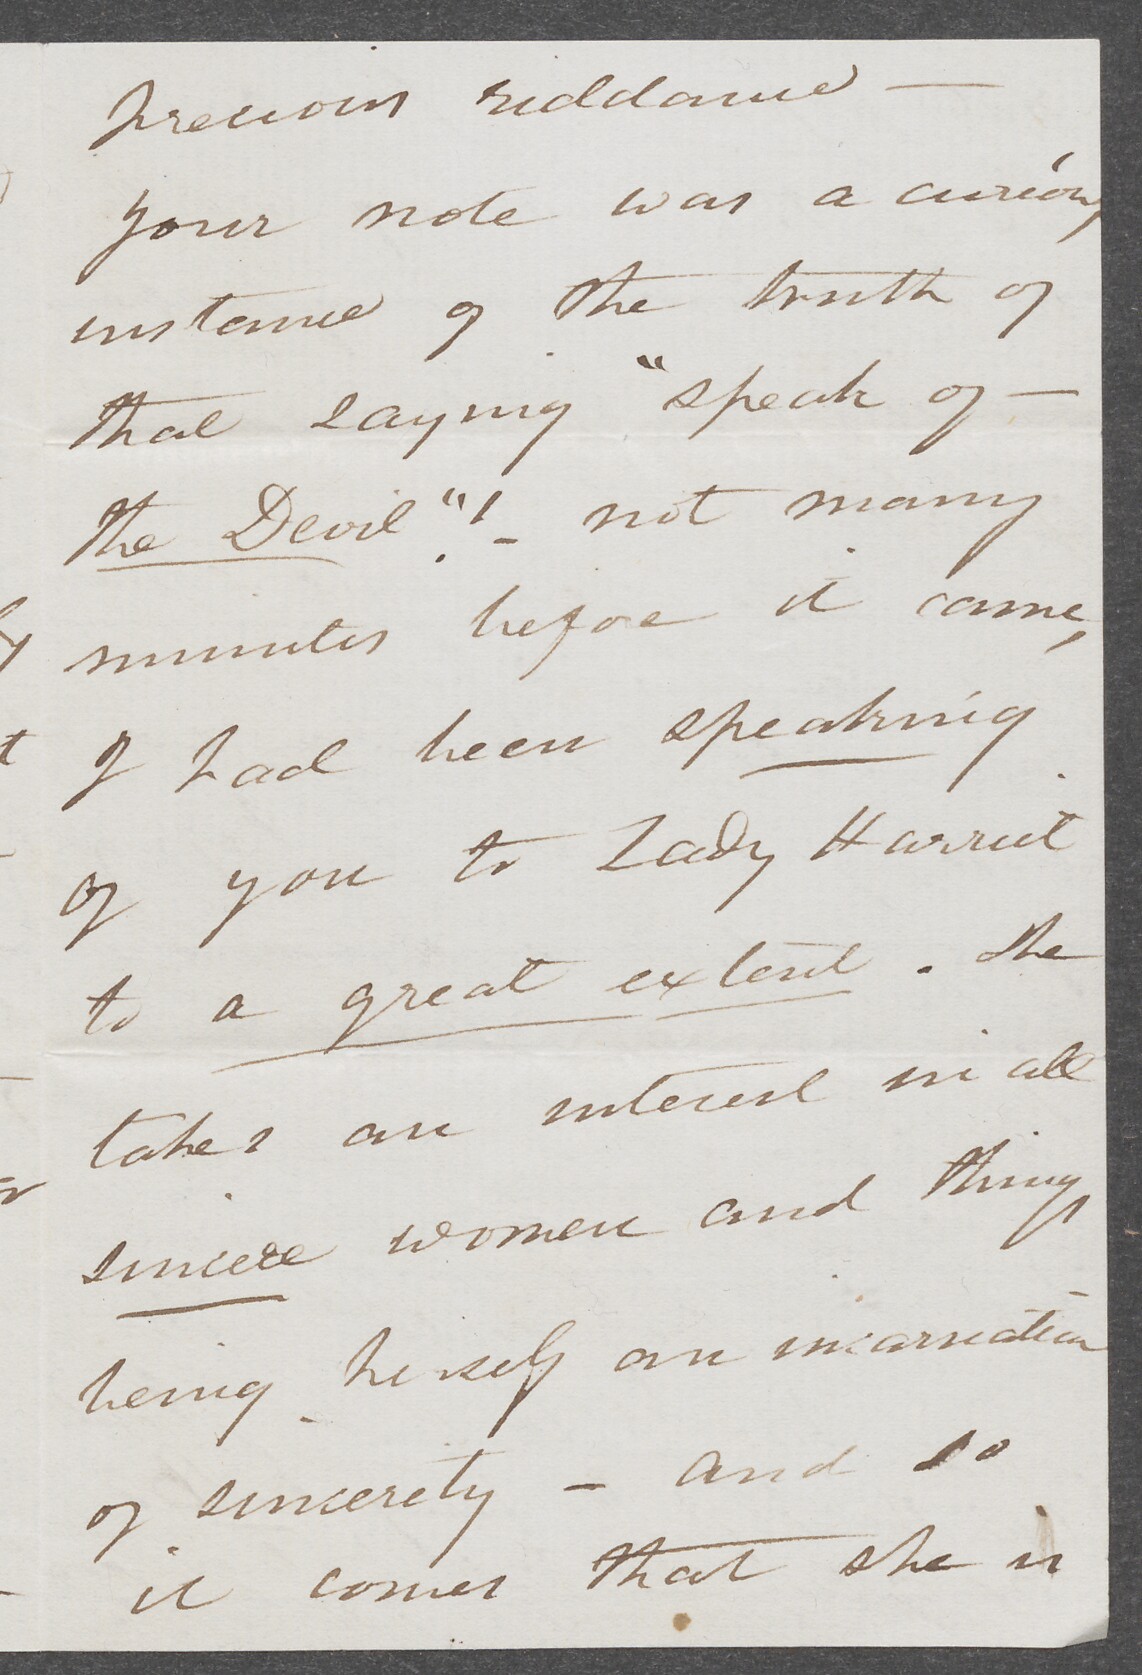 precious riddance —
your note was a curious
instance of the truth of
that saying "speak of —
the Devil"! — not many
minutes before it came,
I had been speaking
of you to Lady Harriet
to a great extent. She
takes an interest in all
sincere women and things
being herself an incarnation
of sincerety — and so
it comes that she is